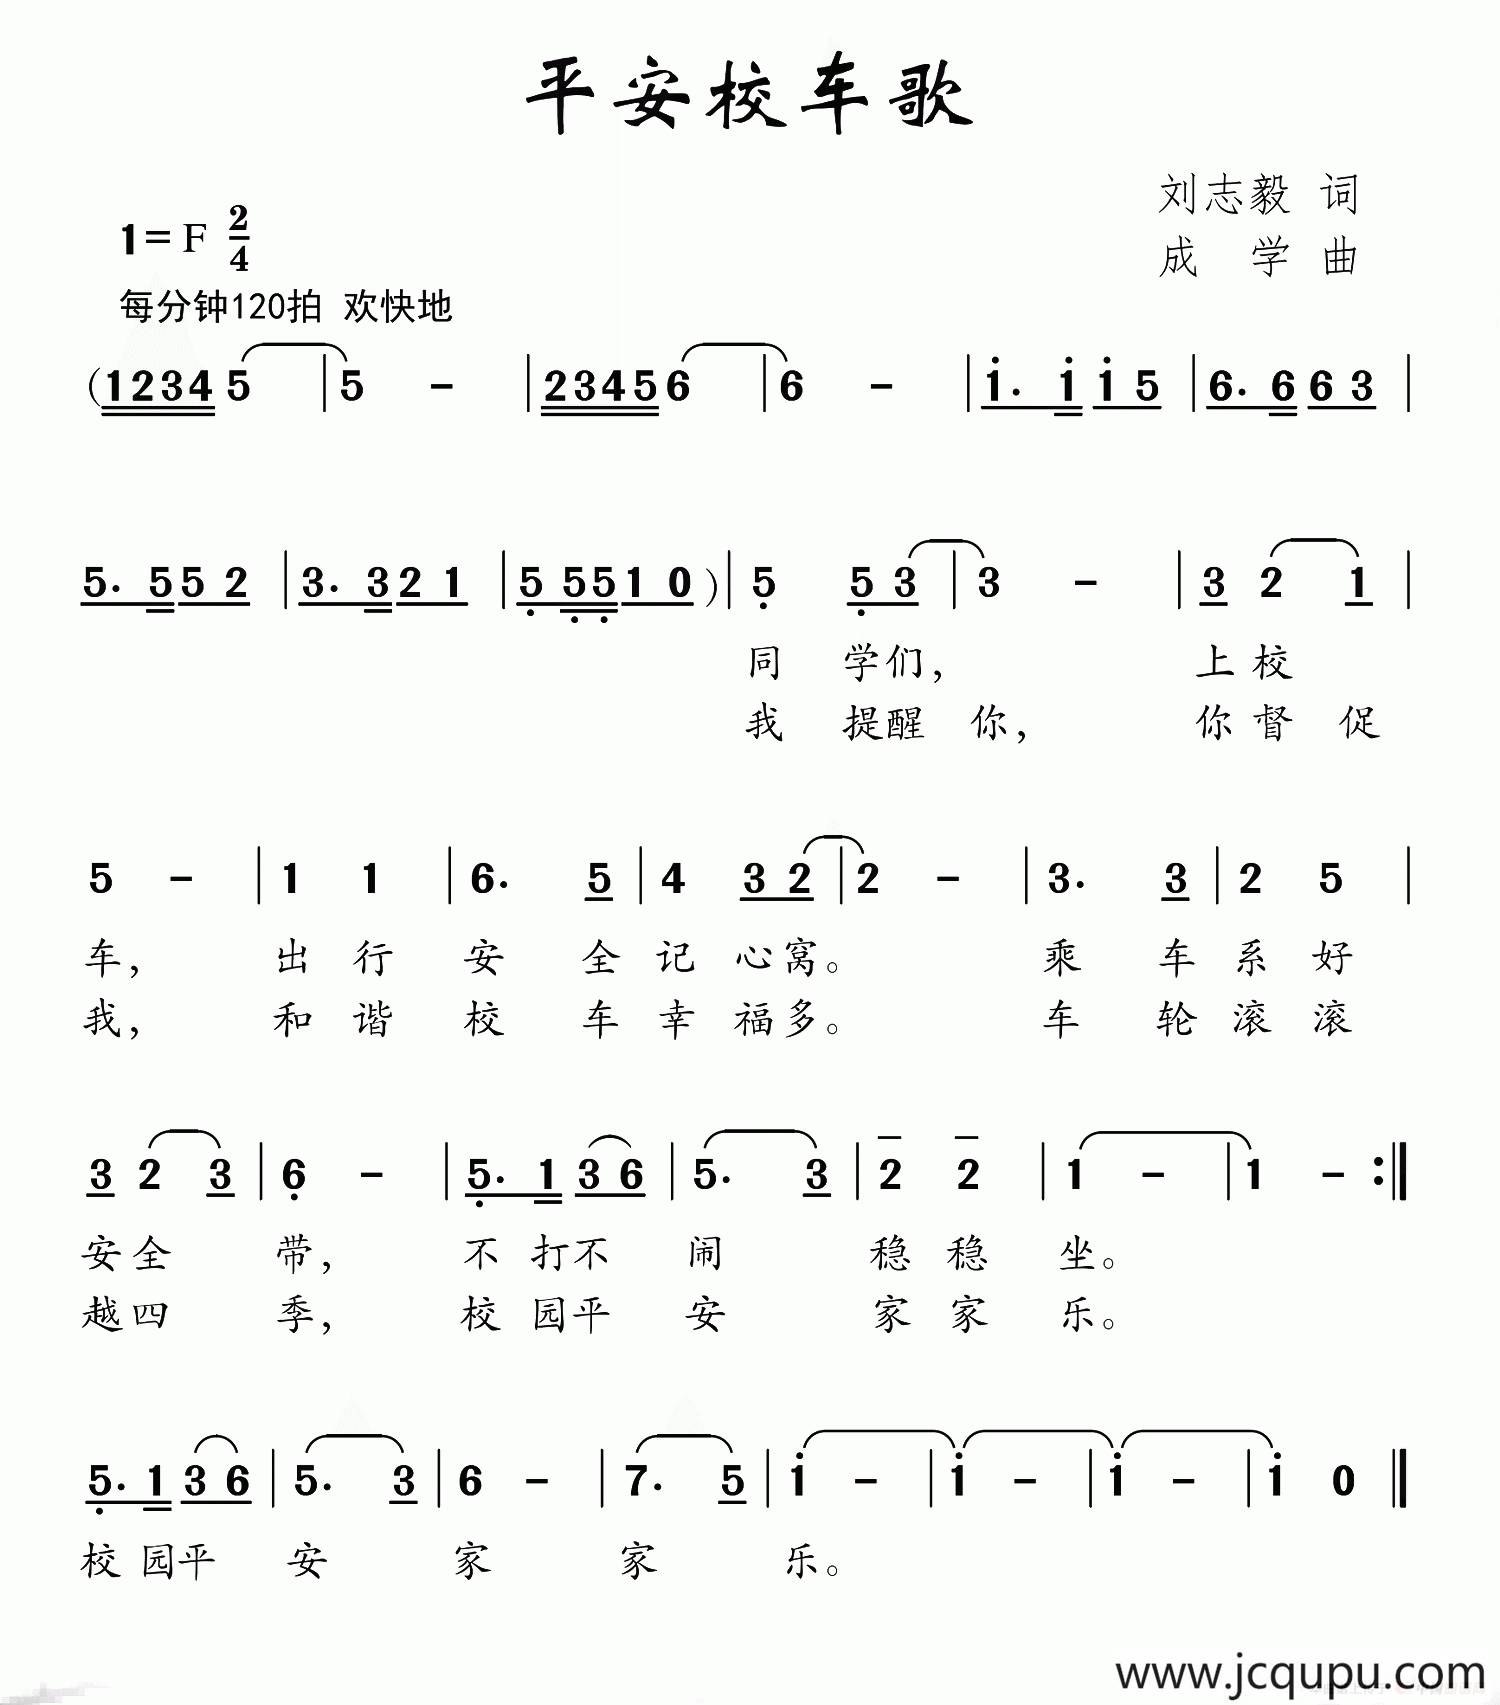 平安校车歌
刘志毅 词
1=F 2/4
成 学 曲
每分钟120拍 欢快地
(1234 5 | 5 - | 23456 | 6 - | i. i i 5 | 6. 6 6 3 |
5. 5 5 2 | 3. 3 2 1 | 5 5 5 1 0 ) | 5 5 3 | 3 - | 3 2 1 |
同 学们， 上 校
我 提醒 你， 你 督 促
5 - | 1 1 | 6. 5 | 4 3 2 | 2 - | 3. 3 | 2 5 |
车， 出 行 安 全 记 心 窝。 乘 车 系 好
我， 和 谐 校 车 幸 福 多。 车 轮 滚 滚
3 2 3 | 6 - | 5. 1 3 6 | 5. 3 | 2 2 | 1 - | 1 - :‖
安 全 带， 不 打 不 闹 稳 稳 坐。
越 四 季， 校 园 平 安 家 家 乐。
5. 1 3 6 | 5. 3 | 6 - | 7. 5 | i - | i - | i - | i 0 ‖
校 园 平 安 家 家 乐。
www.jcqupu.com